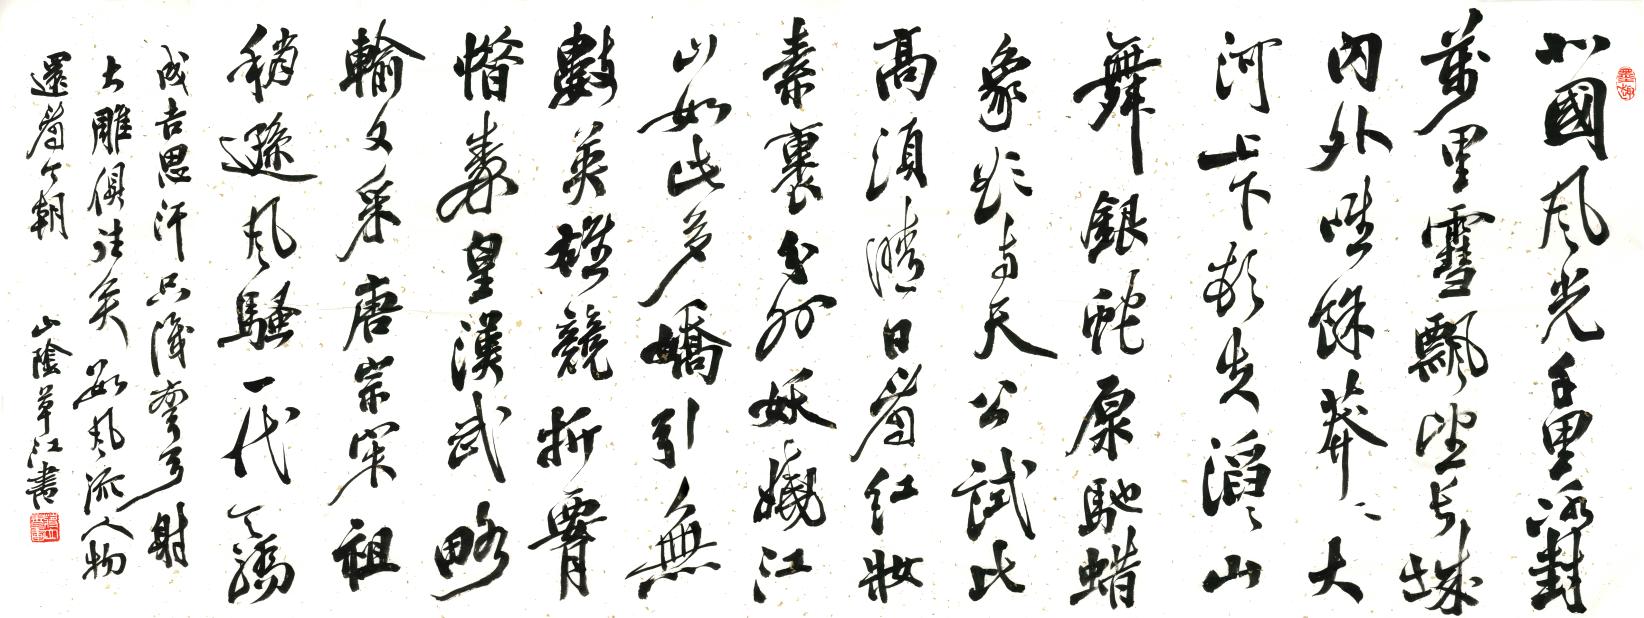 北國風光千里冰封
萬里雪飄望長城
內外唯餘莽〻大
河上下頓失滔〻山
舞銀蛇原馳蜡
象欲與天公試比
高須晴日看紅妝
素裹分外妖嬈江
山如此多嬌引無
數英雄競折腰
惜秦皇漢武略
輸文采唐宗宋祖
稍遜風騷一代天驕
成吉思汗只識彎弓射
大雕俱往矣數風流人物
還看今朝 山陰草江書